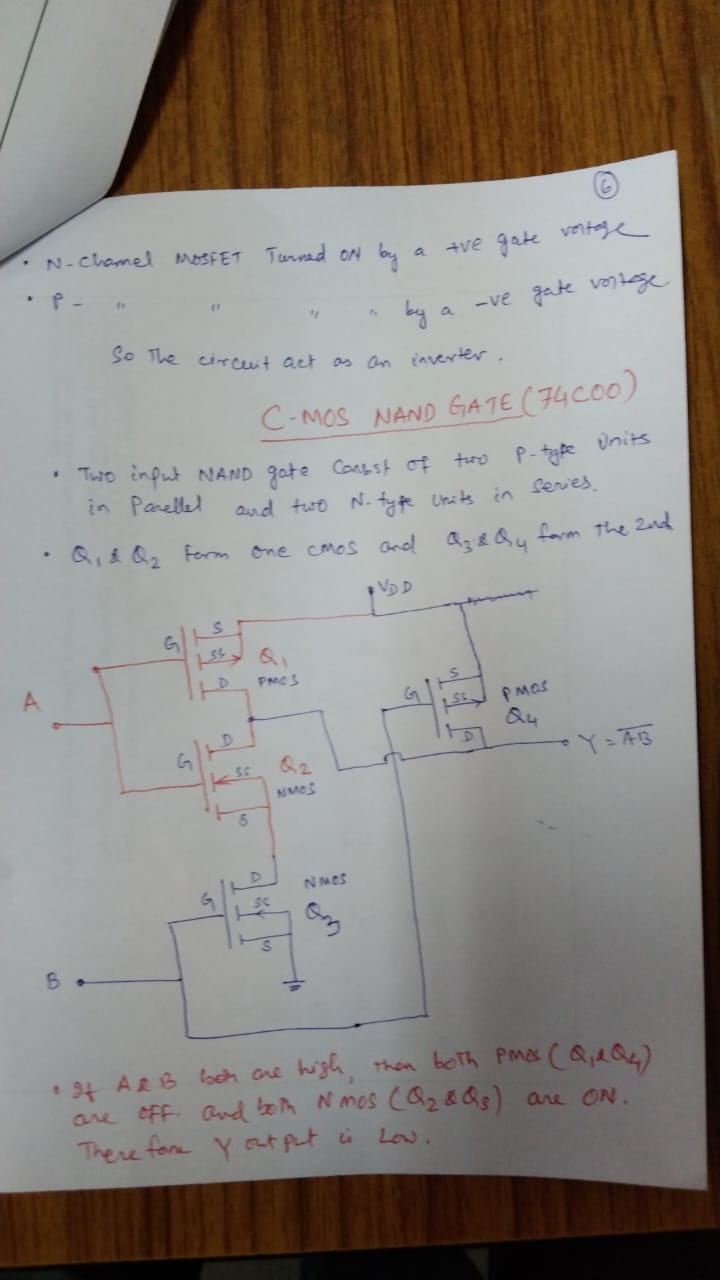 6
• N-Channel MOSFET Turned ON by a +ve gate voltage
• P- " " " " by a -ve gate voltage.
So The circuit act as an inverter.
C-MOS NAND GATE (74C00)
• Two input NAND gate Consst of two P-type Units
in Parellel and two N-type Units in Series.
• Q1 & Q2 form one cmos and Q3 & Q4 form the 2nd
VDD
G S SS D Q1
PMOS
A
G D SS S Q2
NMOS
G S SS D PMOS
Q4
Y = \overline{AB}
G D SS S NMOS
Q3
B
• If A & B both are high, then both PMOS (Q1 & Q4)
are OFF. and both NMOS (Q2 & Q3) are ON.
Therefore Y output is Low.